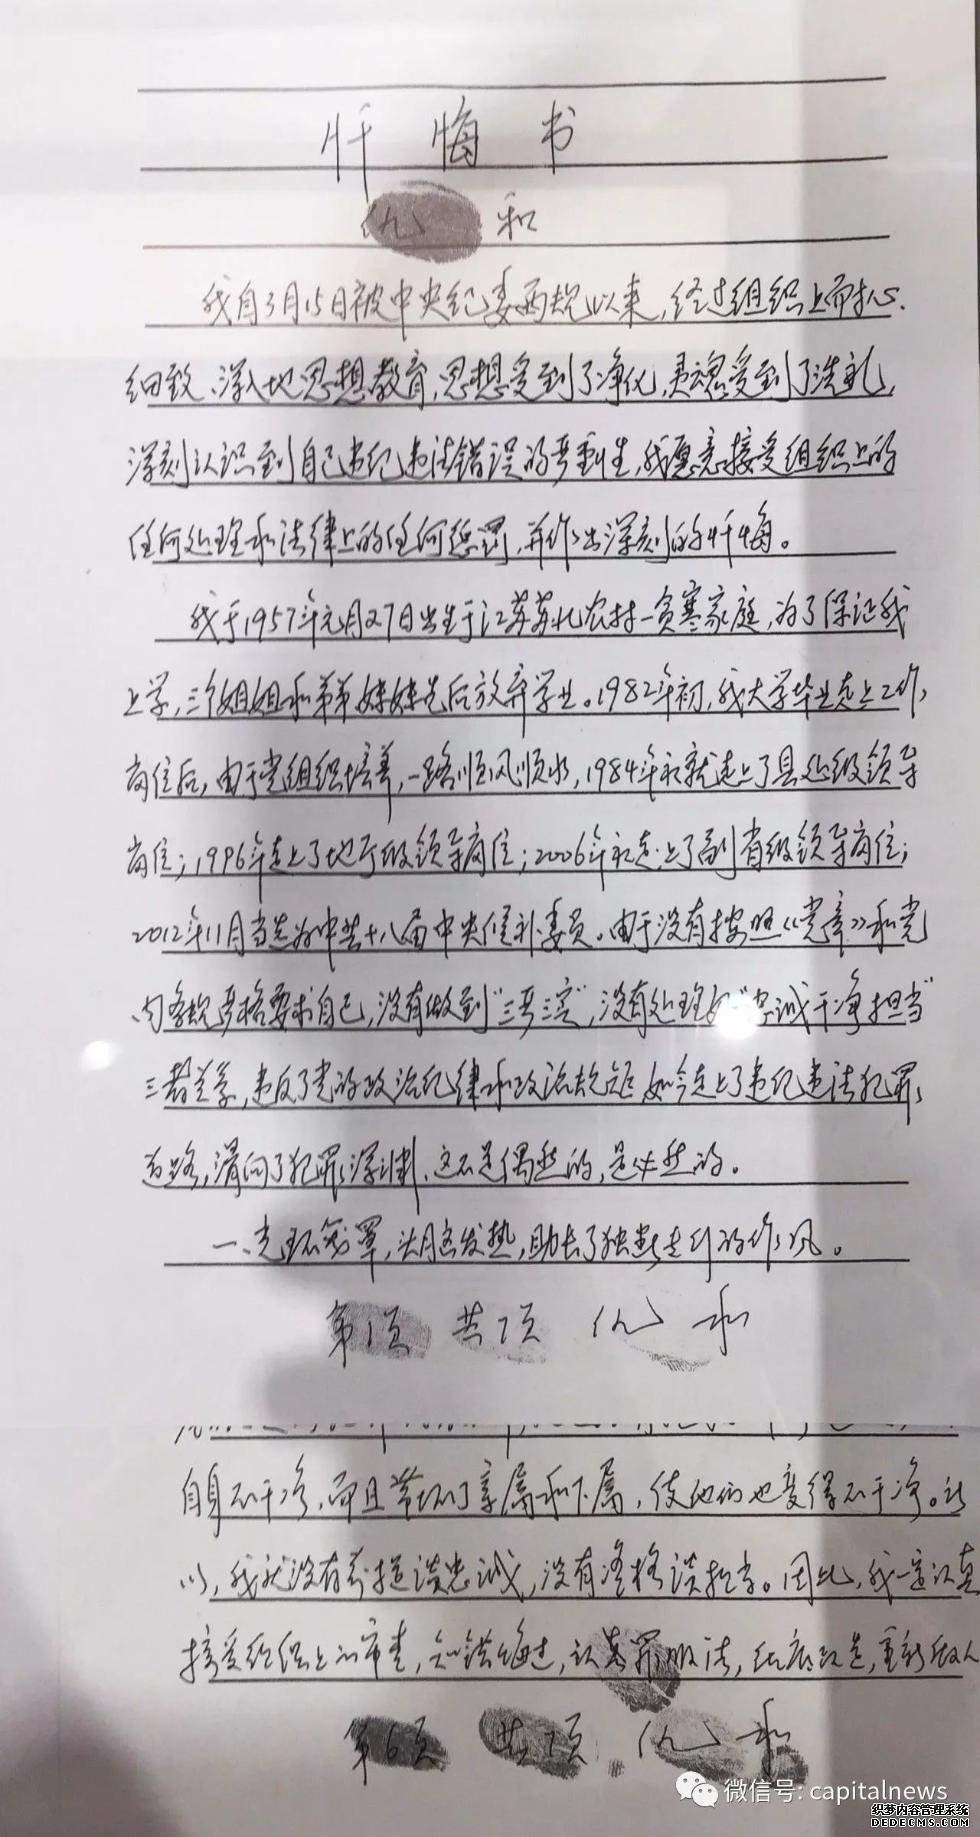 忏悔书
仇和
我自3月15日被中央纪委两规以来,经过组织上耐心、
细致、深入地思想教育,思想受到了净化,灵魂受到了洗礼,
深刻认识到自己违纪违法错误的严重性,我愿意接受组织上的
任何处理和法律上的任何惩罚,并作出深刻的忏悔。
我于1957年元月27日出生于江苏苏北农村一贫寒家庭,为了保证我
上学,三个姐姐和弟弟妹妹先后放弃学业。1982年初,我大学毕业走上工作
岗位后,由于党组织培养,一路顺风顺水,1984年我就走上了县处级领导
岗位;1996年走上了地厅级领导岗位;2006年我走上了副省级领导岗位;
2012年11月当选为中共十八届中央候补委员。由于没有按照《党章》和党
内条规严格要求自己,没有做到"三严三实",没有处理好"忠诚干净担当"
三者关系,违反了党的政治纪律和政治规矩,如今走上了违纪违法犯罪
道路,滑向了犯罪深渊,这不是偶然的,是必然的。
一、光环笼罩,头脑发热,助长了独断专行的作风。
第1页 共7页 仇和
自身不干净,而且带坏了亲属和下属,使他们也变得不干净。所
以,我就没有前提谈忠诚,没有资格谈担当。因此,我一定认真
接受组织上的审查,知错悔过,认罪服法,彻底改造,重新做人
第6页 共7页 仇和
微信号: capitalnews
织梦内容管理系统
DEDECMS.COM